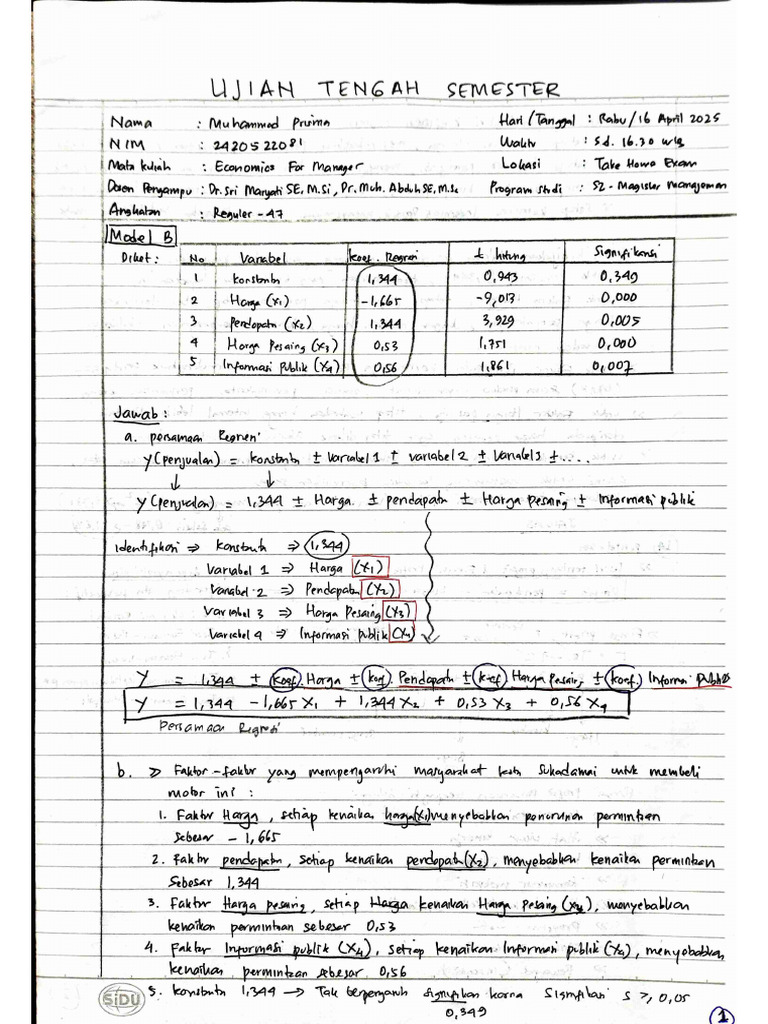 UJIAN TENGAH SEMESTER
Nama : Muhammad Prima Hari/Tanggal : Rabu/16 April 2025
NIM : 2420522081 Waktu : Sd. 16.30 wib
Mata kuliah : Economics For Manager Lokasi : Take Home Exam
Dosen Pengampu : Dr. Sri Maryati SE, M.Si, Dr. Muh. Abduh SE, M.Sc Program Studi : S2 - Magister Manajemen
Angkatan : Reguler - 47
Model B
Diket : No Variabel Koef. Regresi t hitung Signifikansi
1 konstanta 1,344 0,943 0,349
2 Harga (x1) -1,665 -9,013 0,000
3 Pendapatan (x2) 1,344 3,929 0,005
4 Harga Pesaing (x3) 0,53 1,751 0,000
5 Informasi Publik (X4) 0,56 1,861 0,007
Jawab :
a. persamaan Regresi
Y (penjualan) = konstanta ± variabel 1 ± variabel 2 ± variabel 3 ± ....
↓ ↓
Y (penjualan) = 1,344 ± Harga ± pendapatan ± Harga pesaing ± Informasi publik
identifikasi ⇒ konstanta ⇒ 1,344
variabel 1 ⇒ Harga (X1)
variabel 2 ⇒ Pendapatan (X2)
variabel 3 ⇒ Harga Pesaing (X3)
variabel 4 ⇒ Informasi Publik (X4)
Y = 1,344 ± koef. Harga ± koef. Pendapatan ± koef Harga Pesaing ± koef. Informasi Publik
Y = 1,344 - 1,665 X1 + 1,344 X2 + 0,53 X3 + 0,56 X4
Persamaan Regresi
b. > Faktor-faktor yang mempengaruhi masyarakat kota Sukadamai untuk membeli
motor ini :
1. Faktor Harga, setiap kenaikan harga (X1) menyebabkan penurunan permintaan
sebesar - 1,665
2. Faktor pendapatan, setiap kenaikan pendapatan (X2), menyebabkan kenaikan permintaan
sebesar 1,344
3. Faktor Harga pesaing, setiap Harga kenaikan Harga Pesing (X3), menyebabkan
kenaikan permintaan sebesar 0,53
4. Faktor Informasi publik (X4), setiap kenaikan Informasi publik (X4), menyebabkan
kenaikan permintaan sebesar 0,56
5. Konstanta 1,344 → Tak berpengaruh signifikan karna Signifikan s >, 0,05
0,349
SiDU
1